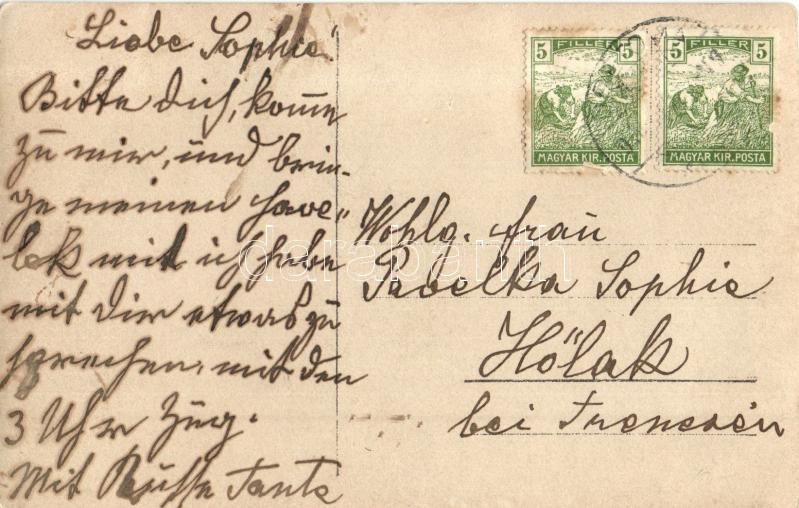 Liebe Sophie!
Bitte dich, kome
zu mir, und brin-
ge meinen Have-
lok mit ich habe
mit dir etwas zu
sprechen, mit den
3 Uhr Zug.
Mit Küsse Tante
5 FILLER 5
MAGYAR KIR. POSTA
5 FILLER 5
MAGYAR KIR. POSTA
Wohlg. Frau
Pavelka Sophie
Hőlak
bei Trencsén
darabanth